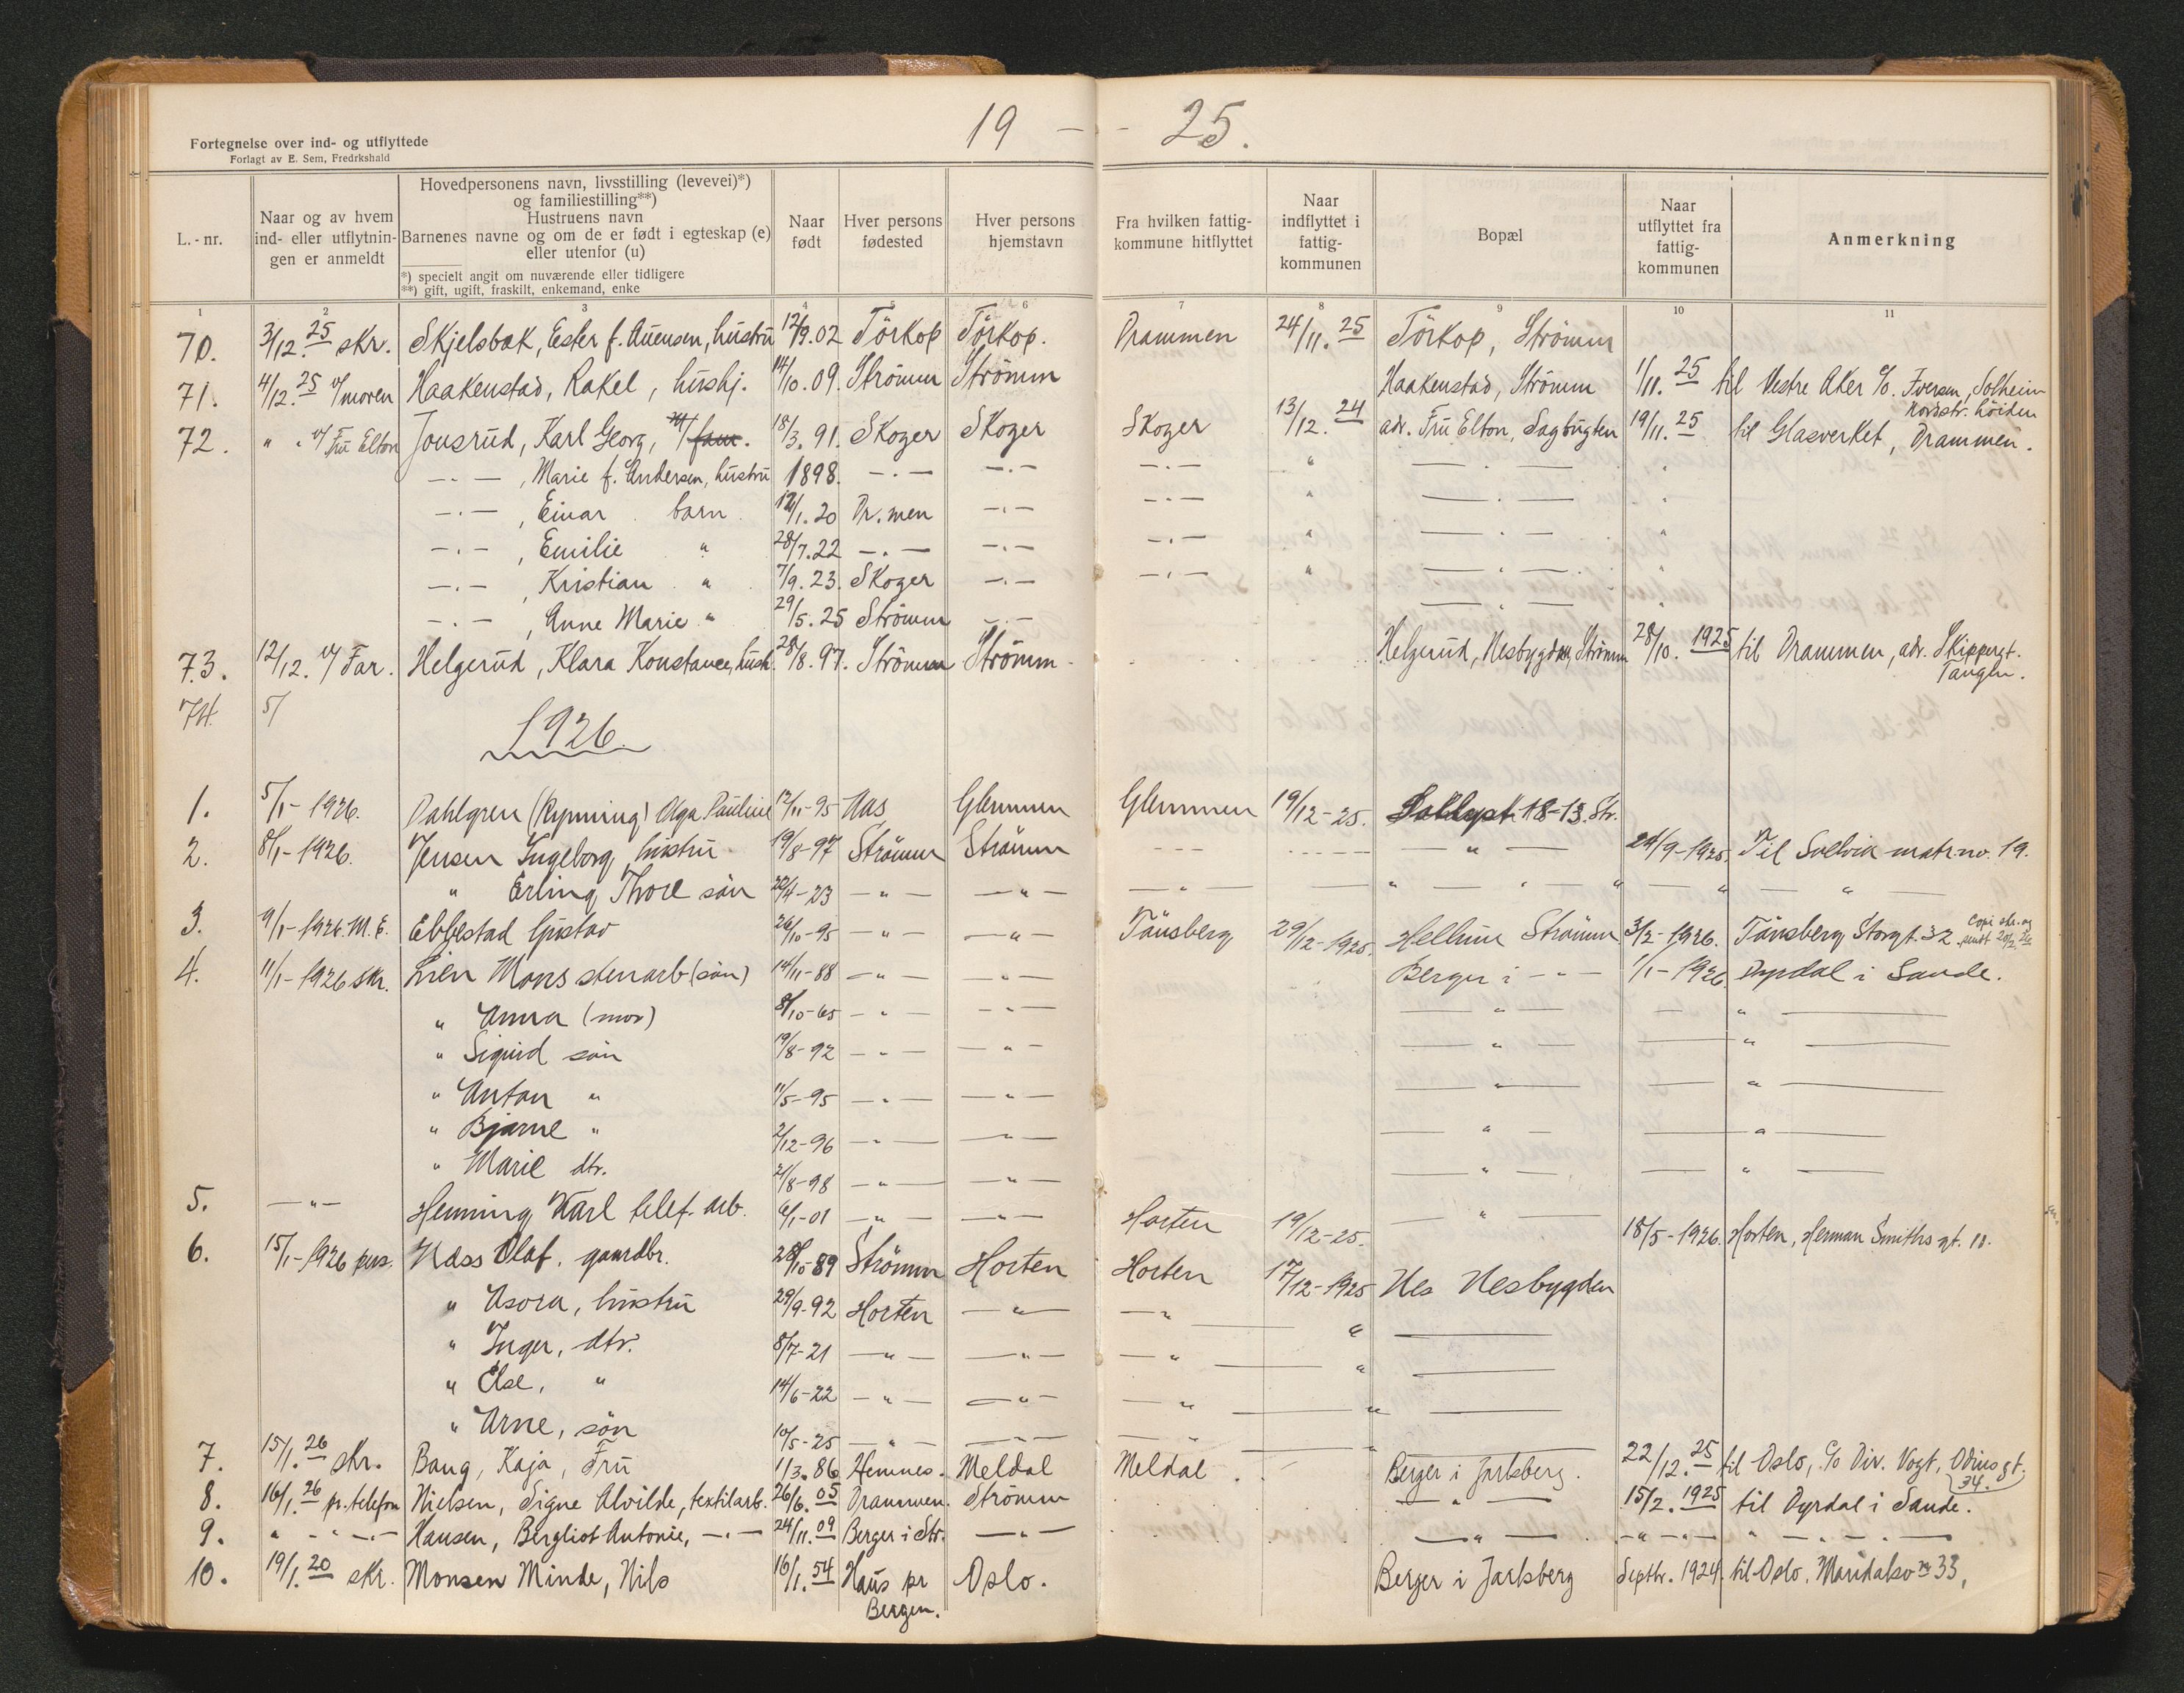 19 — - 25.
Fortegnelse over ind- og utflyttede
Forlagt av E. Sem, Fredrkshald
L.-nr.
Naar og av hvem ind- eller utflytnin- gen er anmeldt
Hovedpersonens navn, livsstilling (levevei)*)
og familiestilling**)
Hustruens navn
Barnenes navne og om de er født i egteskap (e)
eller utenfor (u)
*) specielt angit om nuværende eller tidligere
**) gift, ugift, fraskilt, enkemand, enke
Naar født
Hver persons fødested
Hver persons hjemstavn
Fra hvilken fattig- kommune hitflyttet
Naar indflyttet i fattig- kommunen
Bopæl
Naar utflyttet fra fattig- kommunen
Anmerkning
1 2 3 4 5 6 7 8 9 10 11
70. 3/12.25 skr. Skjelsbæk, Ester f. Auensen, hustru 12/9.02 Törkop Törkop. Drammen 24/11.25 Törkop, Strömm
71. 4/12.25 v/moren Haakenstad, Rakel, hushj. 14/10.09. Strömm Strömm Haakenstad, Strömm 1/11.25 til Vestre Aker c/o. Iversen, Solheim
Nordstr. höiden
72. " " v/ Fru Elton Jonsrud, Karl Georg, 18/3.91. Skoger Skoger Skoger 13/12.24 adr. Fru Elton, Sagbugten 19/11.25 til Glasverket, Drammen.
—.— , Marie f. Andersen, hustru 1898. —.— —.— —.— " —.— "
—.— , Einar barn 12/1.20 Dr.men —.— —.— " —.— "
—.— , Emilie " 28/7.22 —.— —.— —.— " —.— "
—.— , Kristian " 7/9.23. Skoger —.— —.— " —.— "
—.— , Anne Marie " 29/5.25 Strömm —.— —.— "
73. 12/12. v/ Far. Helgerud, Klara Konstance, hush. 28/8.97. Strömm Strömm Helgerud, Nesbygden, Strömm 28/10.1925 til Drammen, adr. Skippergt.
Tangen.
74. 5/
1926.
1. 5/1-1926. Dahlgren (Rynning) Olga Pauline 12/11-95 Aas Glemmen Glemmen 19/12-25. 18-13. Str.
2. 8/1-1926. Jensen Ingeborg hustru 19/8-97 Strömm Strömm - - - - - - - — " — 24/9-1925. Til Svelvik matr.no. 19.
" Erling Thore sön 22/4-23 — " — — " — — " — — " — " — " — " — " —
3. 9/1-1926. M.E. Ebbestad Gustav 26/10-95 — " — — " — Tönsberg 29/12-1925. Hellum Strömm 3/2-1926. Tönsberg Storgt. 32
4. 11/1-1926 skr. Lien Mons stenarb (sön) 14/11-88 — " — — " — Berger i - " - 1/1-1926. Dyrdal i Sande.
" Anna (mor) 8/10-65 — " — — " — — " — — " —
" Sigurd sön 19/8-92 — " — — " — — " — — " —
" Anton " 11/5-95 — " — — " — — " — — " —
" Bjarne " 2/12-96 — " — — " — — " — — " —
" Marie dtr. 21/8-98 — " — — " — — " — — " —
5. — " — Henning Karl telef. arb. 6/1-01 — " — — " — Horten 19/12-25. — " — 18/5-1926. Horten, Herman Smiths gt. 10.
6. 15/1-1926 pers. Næss Olaf. gaardbr. 28/10-89 Strömm Horten Horten 17/12-1925 Nes Nesbygden
" Asora, hustru 29/9-92 Horten — " — — " — " —
" Inger, dtr. 8/7-21 — " — — " — — " — " —
" Else, " 14/6-22 — " — — " — — " — " —
" Arne, sön 10/5-25 — " — — " — — " — " —
7. 15/1.26 skr. Bang, Kaja, Fru 11/3.86 Hemnes. Meldal Meldal. Berger i Jarlsberg. 22/12.25 til Oslo, c/o Dir. Vogt, Odinsgt.
34.
8. 16/1.26 pr. telefon Nielsen, Signe Alvilde, textilarb. 26/6.05 Drammen. Strömm — " — 15/2.1925 til Dyrdal i Sande.
9. " - " -.- Hansen, Bergliot Antonie, —.— 24/11.09 Berger i Str. — " — — " — -"-"- " —.—.—
10. 19/1.20 skr. Monsen Minde, Nils 16/1.54 Haus pr Oslo. Berger i Jarlsberg Septbr. 1924. til Oslo, Maridalsv no 33,
Bergen.